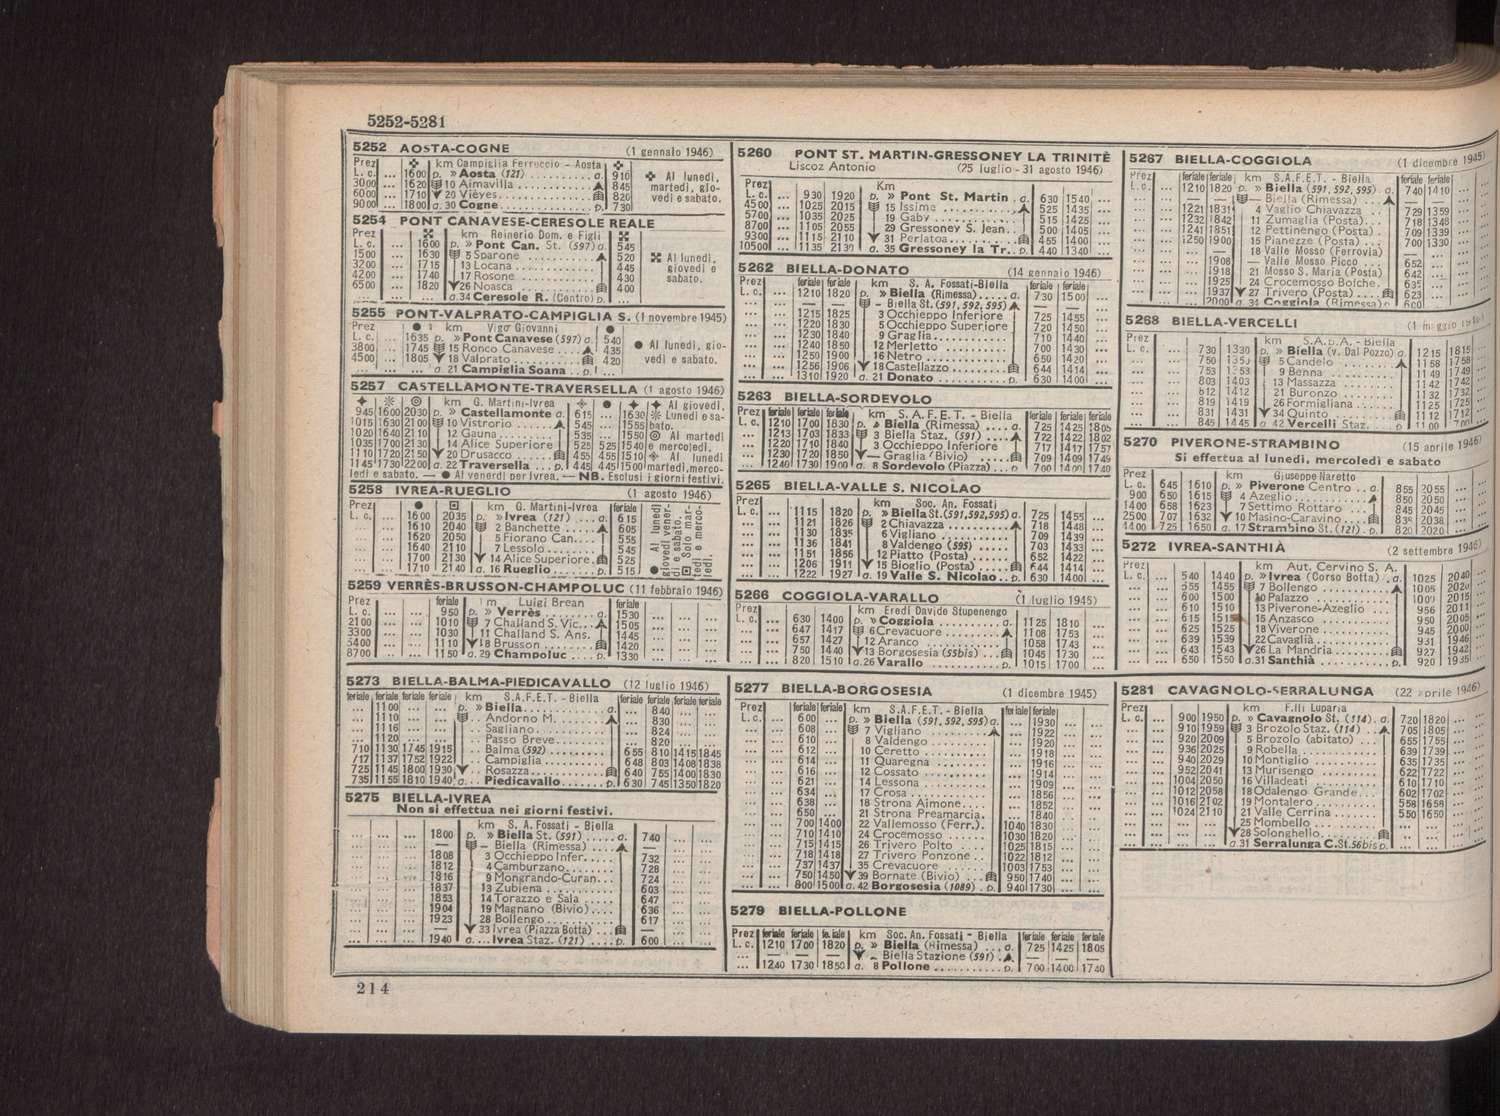 5252-5281
5252 AOSTA-COGNE (1 gennaio 1946)
Prez km Campiglia Ferruccio - Aosta
L. c. ... 1600 p. » Aosta (121) .......... a. 910
3000 ... 1620 10 Aimavilla .......... 845
6000 ... 1710 20 Vièyes .......... 820
9000 ... 1800 a. 30 Cogne .......... p. 730
Al lunedì, martedì, giovedì e sabato.
5254 PONT CANAVESE-CERESOLE REALE
Prez km Reinerio Dom. e Figli
L. c. ... 1600 p. » Pont Can. St. (597) a. 545
1500 ... 1630 5 Sparone .......... 520
3200 ... 1715 13 Locana .......... 445
4200 ... 1740 17 Rosone .......... 430
6500 ... 1820 26 Noasca .......... 400
a. 34 Ceresole R. (Centro) p. ...
Al lunedì, giovedì e sabato.
5255 PONT-VALPRATO-CAMPIGLIA S. (1 novembre 1945)
Prez km Vigo Giovanni
L. c. ... 1635 p. » Pont Canavese (597) a. 540
3800 ... 1745 15 Ronco Canavese .... 435
4500 ... 1805 18 Valprato .......... 420
... a. 21 Campiglia Soana .. p. ...
● Al lunedì, giovedì e sabato.
5257 CASTELLAMONTE-TRAVERSELLA (1 agosto 1946)
km G. Martini-Ivrea
945 1600 2030 p. » Castellamonte a. 615 ... 1630
1015 1630 2100 10 Vistrorio ........ 545 ... 1555
1020 1640 2110 12 Gauna .......... 535 ... 1550
1035 1700 2130 14 Alice Superiore 525 525 1540
1110 1720 2150 20 Drusacco ....... 455 455 1510
1145 1730 2200 a. 22 Traversella ... p. 445 445 1500
Al giovedì. Lunedì e sabato. Al martedì e mercoledì. Al lunedì martedì, mercoledì e sabato. — ● Al venerdì per Ivrea. — NB. Esclusi i giorni festivi.
5258 IVREA-RUEGLIO (1 agosto 1946)
Prez km G. Martini-Ivrea feriale
L. c. ... 1600 2035 p. » Ivrea (121) ... a. 615
1610 2040 2 Banchette ... 605
1620 2050 5 Fiorano Can... 555
1640 2110 7 Lessolo ....... 545
1700 2130 14 Alice Superiore. 525
1710 2140 a. 16 Rueglio ... p. 515
● Al lunedì giovedì venerdì e sabato.
Solo martedì e mercoledì.
5259 VERRÈS-BRUSSON-CHAMPOLUC (11 febbraio 1946)
Prez feriale km Luigi Brean feriale
L. c. ... 950 p. » Verrès .......... a. 1530
2100 ... 1010 7 Challand S. Vic... 1505
3300 ... 1030 11 Challand S. Ans. 1445
5400 ... 1110 18 Brusson .......... 1420
8700 ... 1150 a. 29 Champoluc .... p. 1330
5260 PONT ST. MARTIN-GRESSONEY LA TRINITÈ
Liscoz Antonio (25 luglio - 31 agosto 1946)
Prez Km
L. c. ... 930 1920 p. » Pont St. Martin . a. 630 1540 ...
4500 ... 1025 2015 15 Issime ........... 525 1435 ...
5700 ... 1035 2025 19 Gaby ............ 515 1425 ...
8700 ... 1105 2055 29 Gressoney S. Jean.. 500 1405 ...
9300 ... 1115 2110 31 Perlatoa .......... 455 1400 ...
10500 ... 1135 2130 a. 35 Gressoney la Tr.. p. 440 1340 ...
5262 BIELLA-DONATO (14 gennaio 1946)
Prez feriale feriale km S. A. Fossati-Biella feriale feriale
L. c. ... 1210 1820 p. » Biella (Rimessa) ..... a. 730 1500 ...
— — – Biella St. (591, 592, 595) — —
1215 1825 3 Occhieppo Inferiore 725 1455 ...
1220 1830 5 Occhieppo Superiore 720 1450 ...
1230 1840 9 Graglia ............ 710 1440 ...
1240 1850 12 Merletto ........... 700 1430 ...
1250 1900 16 Netro .............. 650 1420 ...
1256 1906 18 Castellazzo ........ 644 1414 ...
1310 1920 a. 21 Donato ........... p. 630 1400 ...
5263 BIELLA-SORDEVOLO
Prez feriale feriale feriale km S. A. F. E. T. - Biella feriale feriale feriale
L. c. 1210 1700 1830 p. » Biella (Rimessa) .... a. 725 1425 1805
1213 1703 1833 3 Biella Staz. (591) .... 722 1422 1802
1220 1710 1840 3 Occhieppo Inferiore 717 1417 1757
1230 1720 1850 — Graglia (Bivio) ...... 709 1409 1745
1240 1730 1900 a. 8 Sordevolo (Piazza) ... p. 700 1400 1740
5265 BIELLA-VALLE S. NICOLAO
Prez km Soc. An. Fossati
L. c. ... 1115 1820 p. » Biella St. (591,592,595) a. 725 1455 ...
1121 1826 2 Chiavazza .......... 718 1448 ...
1130 1835 6 Vigliano ........... 709 1439 ...
1136 1841 8 Valdengo (595) ..... 703 1433 ...
1151 1856 12 Piatto (Posta) ...... 652 1422 ...
1206 1911 15 Bioglio (Posta) ..... 644 1414 ...
1222 1927 a. 19 Valle S. Nicolao .. p. 630 1400 ...
5266 COGGIOLA-VARALLO (1 luglio 1945)
Prez km Eredi Davide Stupenengo
L. c. ... 630 1400 p. » Coggiola .......... a. 1125 1810
647 1417 6 Crevacuore ......... 1108 1753
657 1427 12 Aranco ............. 1058 1743
750 1440 13 Borgosesia (55bis) ... 1045 1730
820 1510 a. 26 Varallo ........... p. 1015 1700
5267 BIELLA-COGGIOLA (1 dicembre 1945)
Prez feriale feriale km S.A.F.E.T. - Biella feriale feriale
L. c. ... 1210 1820 p. » Biella (591, 592, 595) a. 740 1410
— — Biella (Rimessa) — —
1221 1831 4 Vaglio Chiavazza .. 729 1359
1232 1842 11 Zumaglia (Posta) .. 718 1348
1241 1851 12 Pettinengo (Posta) . 709 1339
1250 1900 15 Pianezze (Posta) ... 700 1330
... — 18 Valle Mosso (Ferrovia) —
... 1908 — Valle Mosso Picco ... 652 ...
... 1918 21 Mosso S. Maria (Posta) 642 ...
... 1925 24 Crocemosso Bolche. 635 ...
... 1937 27 Trivero (Posta) .... 623 ...
... 2000 a. 31 Coggiola (Rimessa) p.
5268 BIELLA-VERCELLI
Prez km S.A.D.A. - Biella
L. c. ... 730 1330 p. » Biella (v. Dal Pozzo) a. 1215 1815
750 1350 5 Candelo .......... 1158 1758
753 1353 9 Benna ............ 1149 1749
803 1403 13 Massazza ......... 1142 1742
812 1412 21 Buronzo .......... 1132 1732
819 1419 26 Formigliana ...... 1125 1725
831 1431 34 Quinto ........... 1112 1712
845 1445 a. 42 Vercelli Staz. .. p. 1100
5270 PIVERONE-STRAMBINO (15 aprile 1946)
Si effettua al lunedì, mercoledì e sabato
Prez km Giuseppe Naretto
L. c. 645 1610 p. » Piverone Centro .. a. 855 2055
900 650 1615 4 Azeglio .......... 850 2050
1400 658 1623 7 Settimo Rottaro ... 845 2045
2500 707 1632 10 Masino-Caravino ... 838 2038
4400 725 1650 a. 17 Strambino St. (121) . p. 820 2020
5272 IVREA-SANTHIÀ (2 settembre 1946)
Prez km Aut. Cervino S. A.
L. c. ... 540 1440 p. » Ivrea (Corso Botta) . a. 1025 2040
555 1455 7 Bollengo ........... 1005 2020
600 1500 10 Palazzo ............ 1000 2015
610 1510 13 Piverone-Azeglio ... 956 2011
615 1515 15 Anzasco ............ 950 2005
625 1525 18 Viverone ........... 945 2000
639 1539 22 Cavaglià ........... 931 1946
643 1543 26 La Mandria ......... 927 1942
650 1550 a. 31 Santhià .......... p. 920 1935
5273 BIELLA-BALMA-PIEDICAVALLO (12 luglio 1946)
feriale feriale feriale feriale km S.A.F.E.T. - Biella feriale feriale feriale feriale
... 1100 ... ... p. » Biella ............ a. ... 840 ... ...
... 1110 ... ... Andorno M. ....... ... 830 ... ...
... 1116 ... ... Sagliano .......... ... 824 ... ...
... 1120 ... ... Passo Breve ....... ... 820 ... ...
710 1130 1745 1915 Balma (592) ....... 655 810 1415 1845
717 1137 1752 1922 Campiglia ......... 648 803 1408 1838
725 1145 1800 1930 Rosazza ........... 640 755 1400 1830
735 1155 1810 1940 a. Piedicavallo .... p. 630 745 1350 1820
5275 BIELLA-IVREA
Non si effettua nei giorni festivi.
km S. A. Fossati - Biella
1800 p. » Biella St. (591) ..... a. 740
— – Biella (Rimessa) —
1808 3 Occhieppo Infer..... 732
1812 4 Camburzano ....... 728
1816 9 Mongrando-Curan... 724
1837 13 Zubiena .......... 603
1853 14 Torazzo e Sala .... 647
1904 19 Magnano (Bivio) .... 636
1923 28 Bollengo .......... 617
— 33 Ivrea (Piazza Botta) ... —
1940 a. ... Ivrea Staz. (121) .... p. 600
5277 BIELLA-BORGOSESIA (1 dicembre 1945)
Prez feriale feriale km S.A.F.E.T. - Biella feriale feriale
L. c. ... 600 ... p. » Biella (591, 592, 595) a. ... 1930
608 ... 7 Vigliano .......... ... 1922
610 ... 8 Valdengo .......... ... 1920
612 ... 10 Ceretto ........... ... 1918
614 ... 11 Quaregna .......... ... 1916
616 ... 12 Cossato ........... ... 1914
621 ... 14 Lessona ........... ... 1909
634 ... 17 Crosa ............. ... 1856
638 ... 18 Strona Aimone ..... ... 1852
650 ... 21 Strona Preamarcia. ... 1840
700 1400 22 Vallemosso (Ferr.). 1040 1830
710 1410 24 Crocemosso ....... 1030 1820
715 1415 26 Trivero Polto .... 1025 1815
718 1418 27 Trivero Ponzone .. 1022 1812
737 1437 35 Crevacuore ....... 1003 1753
750 1450 39 Bornate (Bivio) .. 950 1740
800 1500 a. 42 Borgosesia (1089) . p. 940 1730
5279 BIELLA-POLLONE
Prez feriale feriale feriale km Soc. An. Fossati - Biella feriale feriale feriale
L. c. 1210 1700 1820 p. » Biella (Rimessa) ... a. 725 1425 1805
... — — — – Biella Stazione (591) . — — —
... 1240 1730 1850 a. 8 Pollone ........... p. 700 1400 1740
5281 CAVAGNOLO-SERRALUNGA (22 aprile 1946)
Prez km F.lli Luparia
L. c. ... 900 1950 p. » Cavagnolo St. (114) . a. 720 1820
910 1959 3 Brozolo Staz. (114) .. 705 1805
920 2009 5 Brozolo (abitato) ... 655 1755
936 2025 9 Robella ............ 639 1739
940 2029 10 Montiglio .......... 635 1735
952 2041 13 Murisengo .......... 622 1722
1004 2050 16 Villadeati ......... 610 1710
1012 2058 18 Odalengo Grande .. 602 1702
1016 2102 19 Montalero .......... 558 1658
1024 2110 21 Valle Cerrina ...... 550 1650
25 Mombello ...........
28 Solonghello .........
a. 31 Serralunga C. St. 56bis p.
214